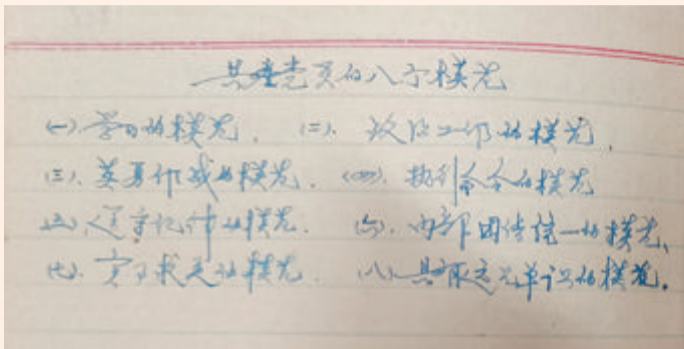 共产党员的八个模范
(一)学习的模范. (二). 政治工作的模范.
(三).英勇作战的模范. (四).执行命令的模范
(五)遵守纪律的模范. (六).内部团结统一的模范、
(七).实事求是的模范. (八).具有远见卓识的模范.